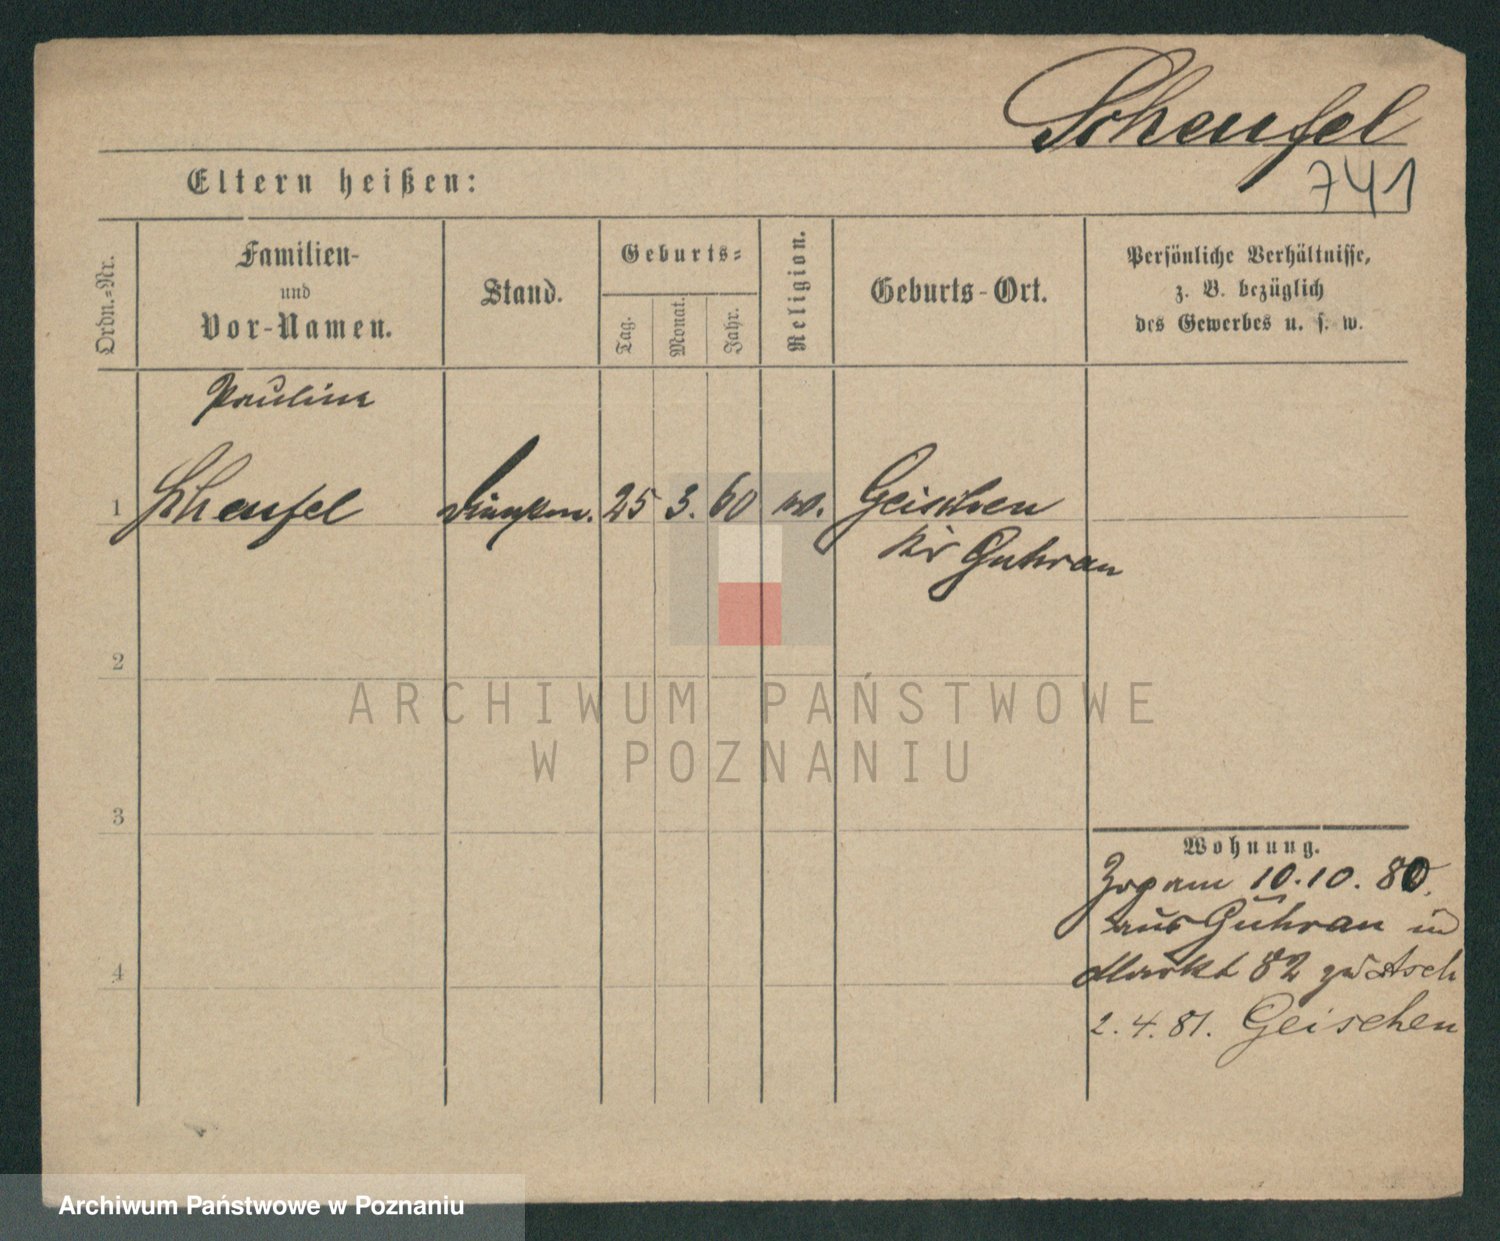 Scheufel
741
Eltern heißen:
Ordn.=Nr.
Familien-
und
Vor-Namen.
Stand.
Geburts=
Tag.
Monat.
Jahr.
Religion.
Geburts-Ort.
Persönliche Verhältnisse,
z. B. bezüglich
des Gewerbes u. s. w.
Pauline
1 Scheufel 25 3. 60 Geischen
Kr Guhrau
2
3
4
Wohnung.
Zog am 10.10.80.
aus Guhrau in
Markt 82
2.4.81. Geischen
ARCHIWUM PAŃSTWOWE
W POZNANIU
Archiwum Państwowe w Poznaniu